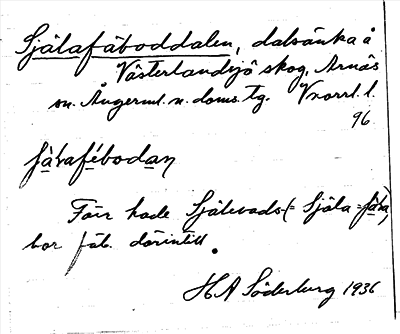 Själafäboddalen, dalsänka å
Västerlandsjö skog, Arnäs
sn. Ångerml. n. doms. tg. Vnorrl. l.
96
fä̀bodan
Förr hade Själevads- (= Själa =
bor fäb. därintill.
HA Söderburg 1936